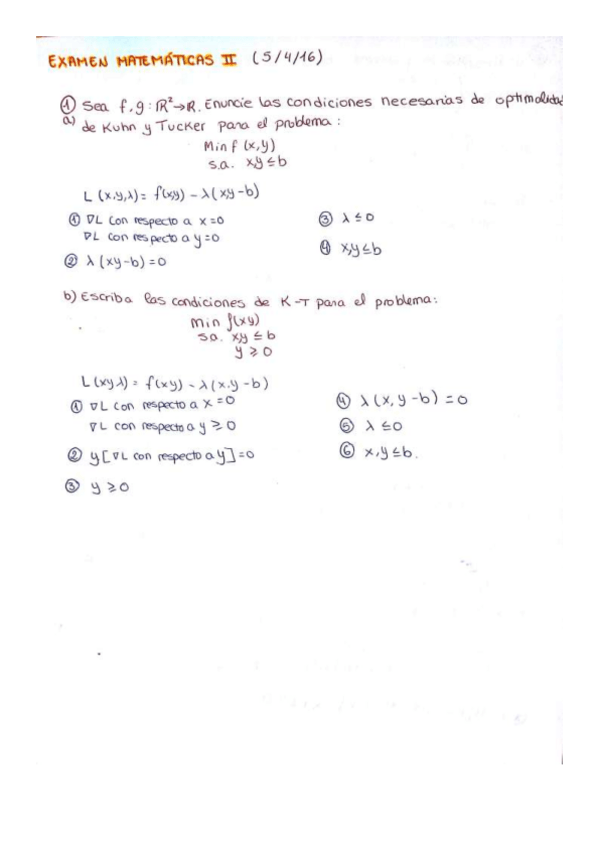 EXAMEN MATEMÁTICAS II (5/4/16)
① Sea f,g: R²→R. Enuncie las condiciones necesarias de optimalidad
a) de Kuhn y Tucker para el problema:
Min f (x,y)
s.a. x,y ≤ b
L (x,y,λ) = f(x,y) - λ(x,y-b)
① ∇L con respecto a x=0
∇L con respecto a y=0
② λ (xy-b)=0
③ λ ≤ 0
④ x,y ≤ b
b) Escriba las condiciones de K-T para el problema:
min f(x,y)
s.a. x,y ≤ b
y ≥ 0
L(x,y,λ) = f(x,y) - λ(x,y-b)
① ∇L con respecto a x=0
∇L con respecto a y ≥ 0
② y[∇L con respecto a y]=0
③ y ≥ 0
④ λ(x,y-b) = 0
⑤ λ ≤ 0
⑥ x,y ≤ b.